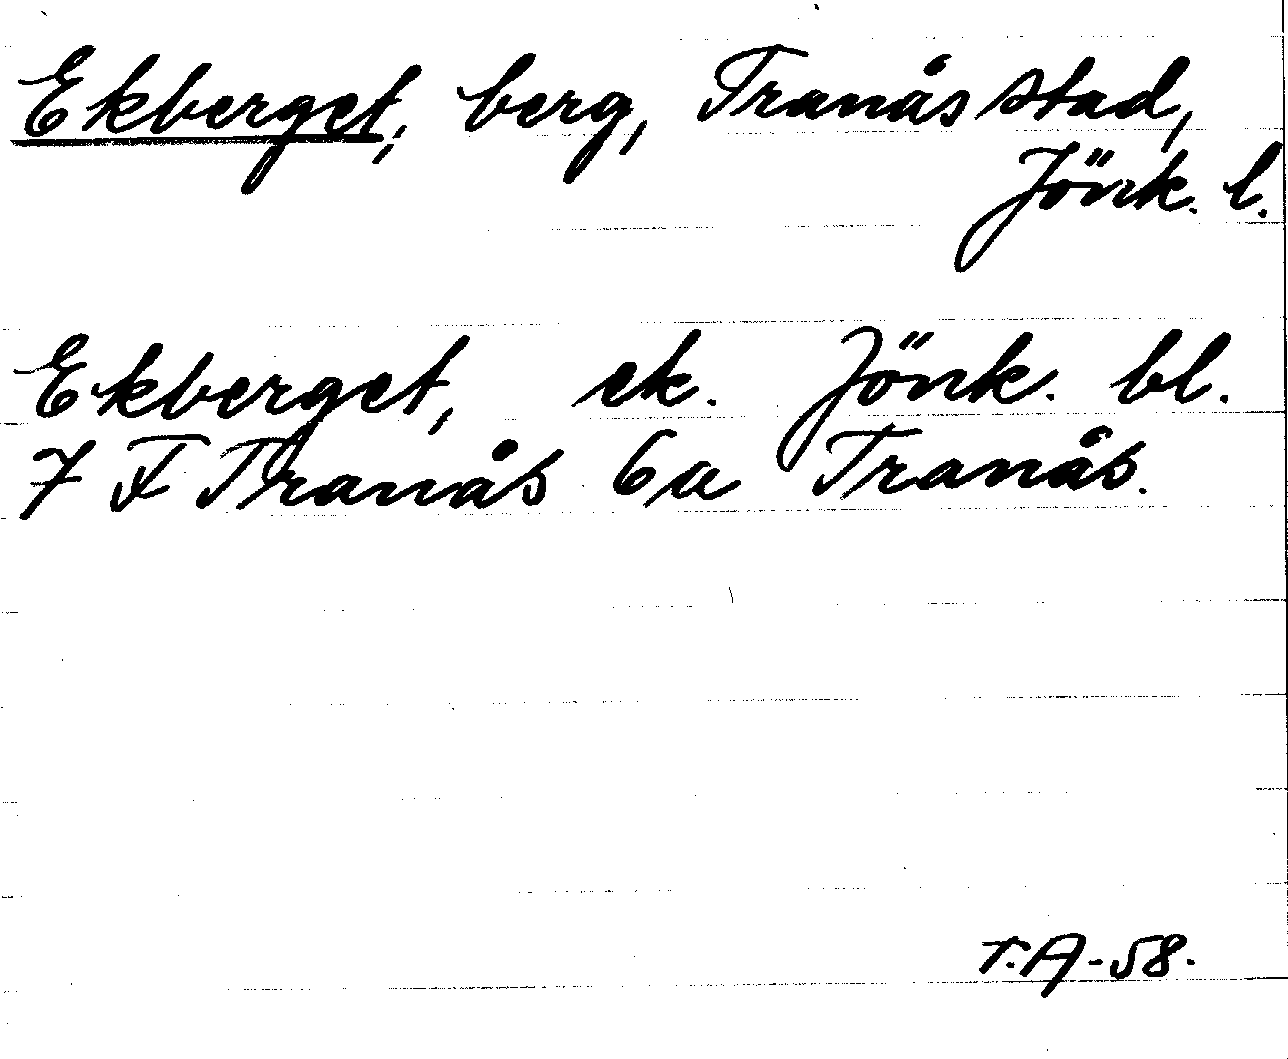 Ekberget, berg, Tranås stad,
Jönk. l.
Ekberget, ek. Jönk. bl.
7 F Tranås 6a Tranås.
T.A-58.